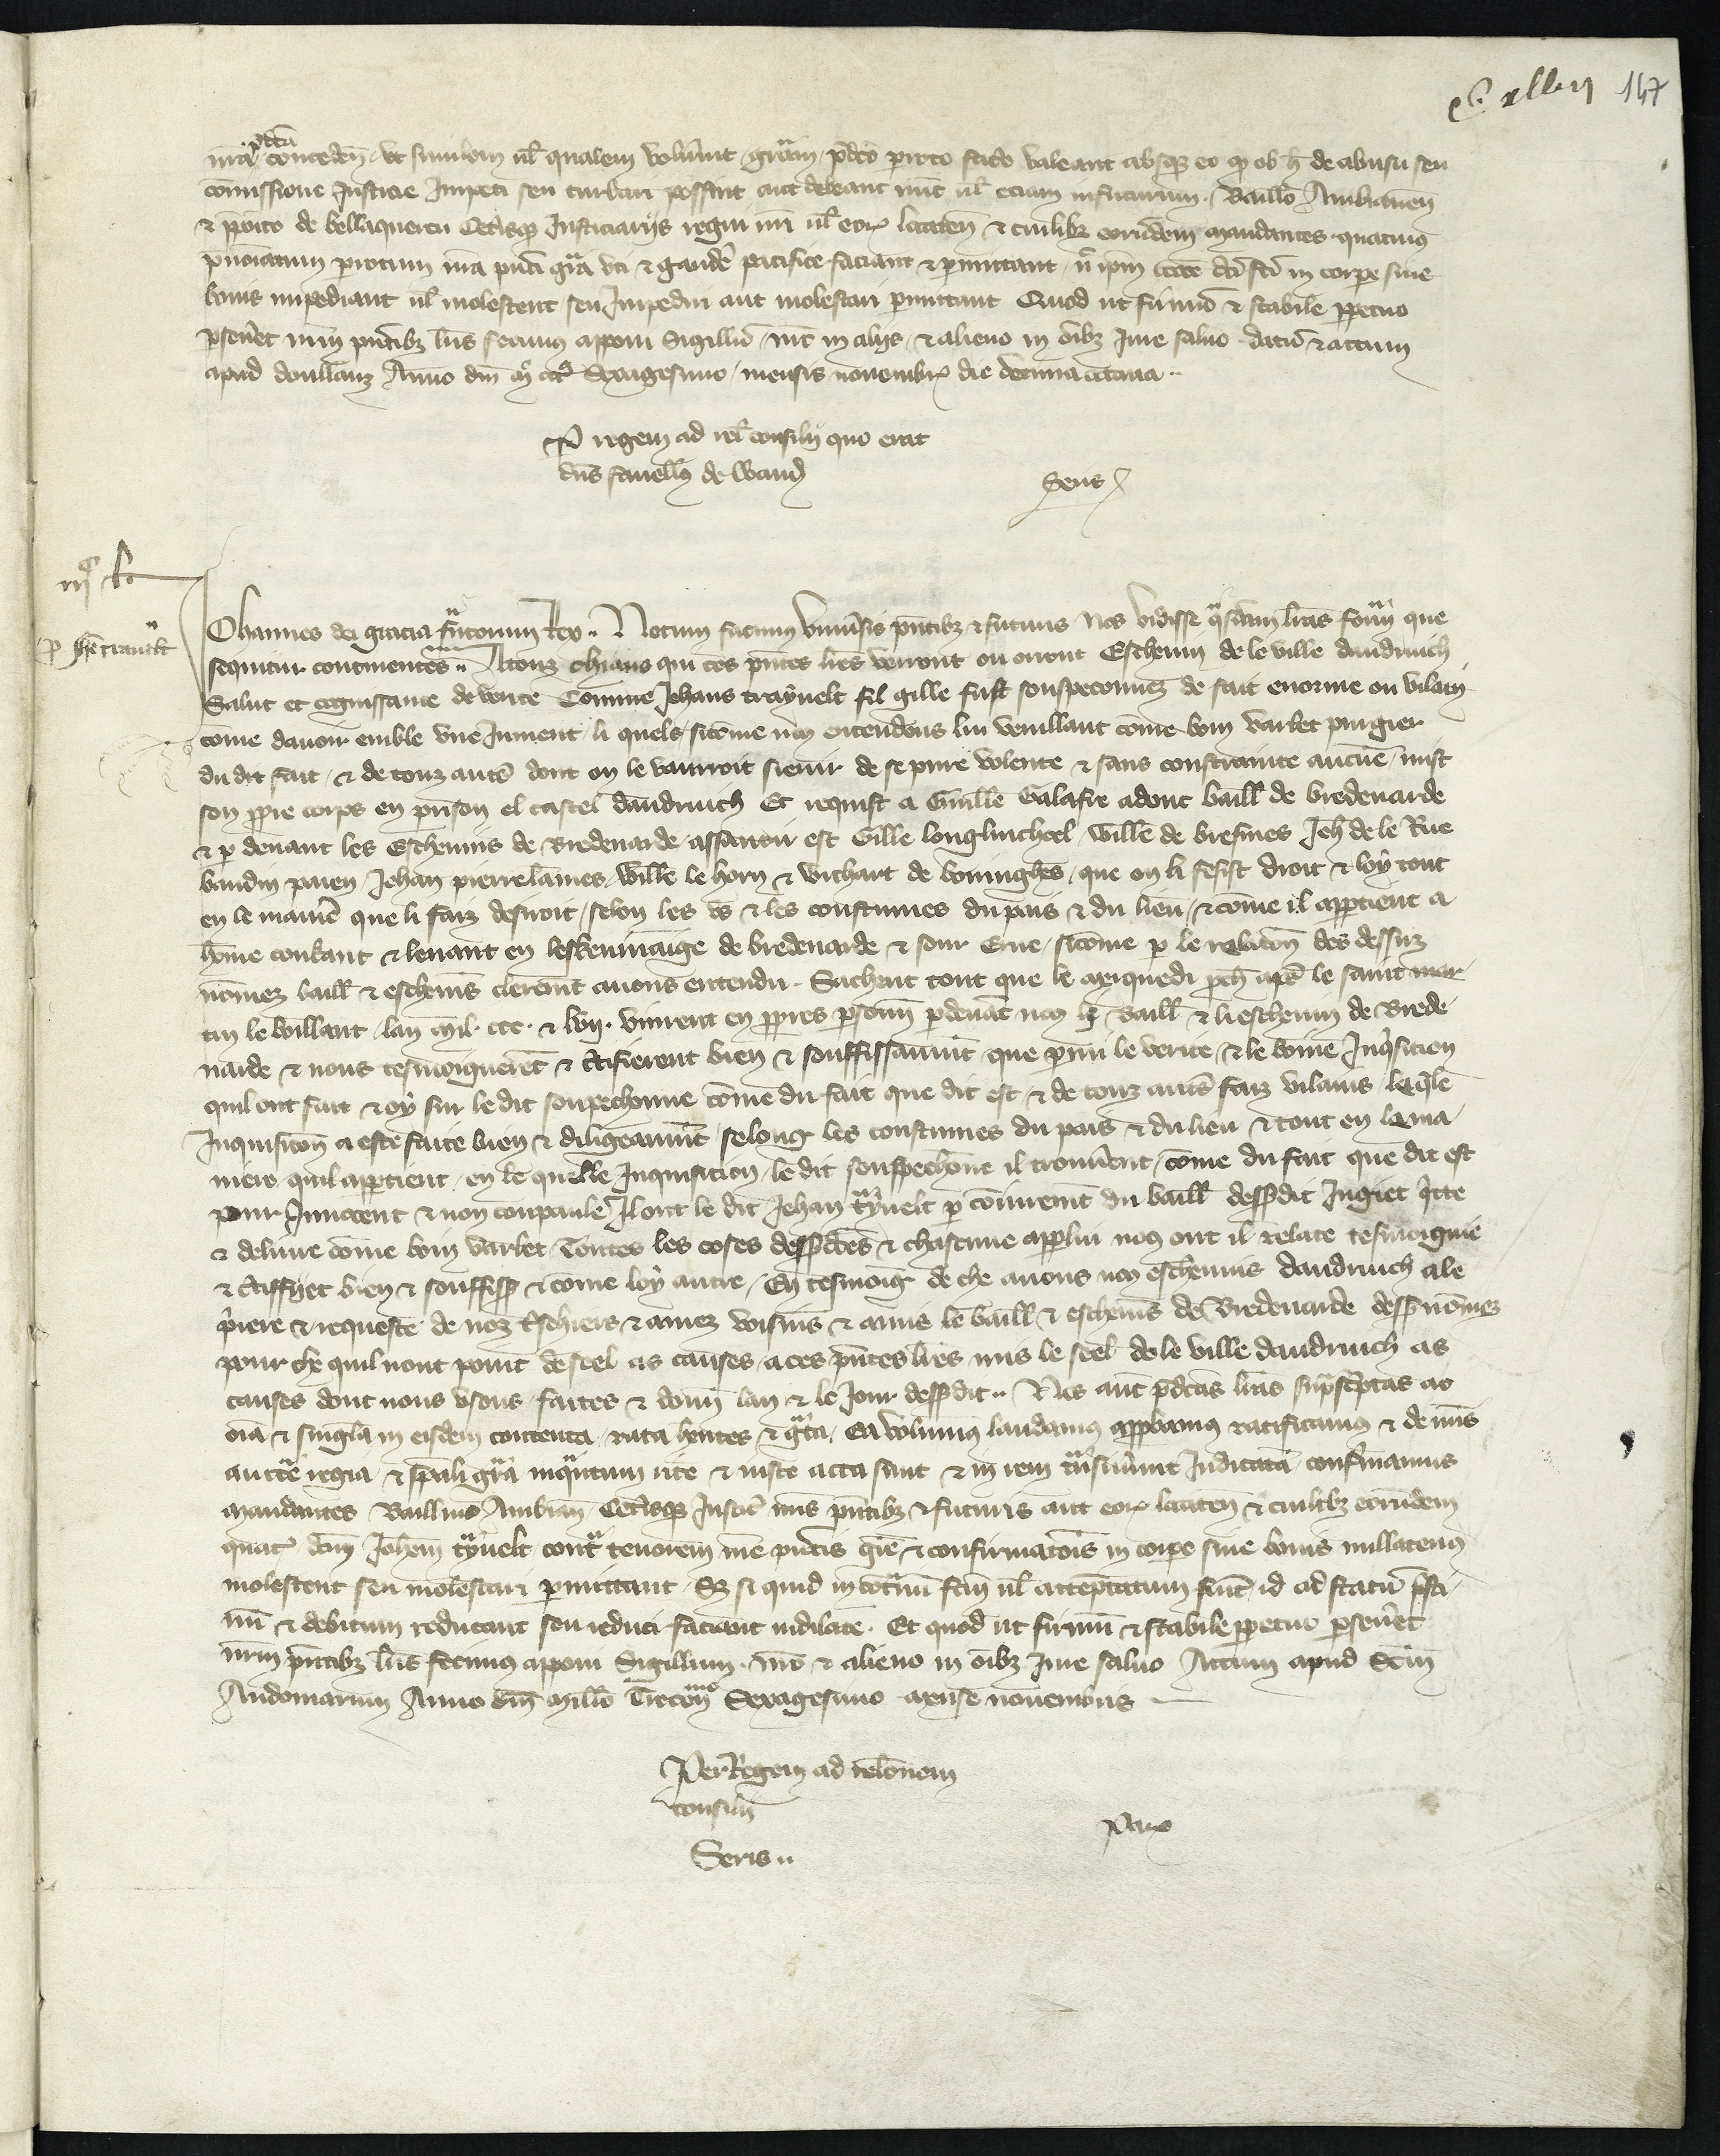 147
p̄dc̄a
nr̄a concedem̄ . vt similem ul̄ qualem volu̾int gr̄am p̄dc̄o pieto facto valeant absq̨ eo q̨ ob h̄ de abusu seu
comissione Justicie Impeti seu turbari possint aut debeant nūc ul̄ eciam infuturum . Baill̄o Ambianen̄
& p̄po̾ito de bellaquercu Cet̾isq̨ Justiciariis regni nr̄i ul̄ eoꝝ locaten̄ & cuilibȝ eorūdem mandantes quatinus
p̄no͞iatum pietum nr̄a p̄nti gr̄a vti & gaude̾ pacifice faciant & p̱mittant / n̄ ip̄m occōe dc̄i fc̄i in corpe siue
bonis impediant ul̄ molestent seu Impediri aut molestari p̱mittant Quod ut firmū & stabile pp̱etuo
p̱seue̾t nr̄m p̄ntibȝ lr̄is fecimus apponi Sigillū / nr̄o in aliis / & alieno in oībȝ Jure saluo datū & actum
apud doullanz Anno dn̄i M̊ ccc̊ Sexagesimo / mensis nouembꝝ die decima octaua ..
P̱ regem ad rel̄ consilij quo erat
dn̄s fauellus de Wand̄
Seris
Johannes dei gracia francorum Rex .. Notum facimus vniu̾sis p̄ntibȝ & futuris Nos vidisse q̾sdam lr̄as formā que
sequitur continentes .. A touz chiaus qui ces p̄ntes lr̄es verront ou orront Escheuin de le ville daudruich
Salut et cognissance de verite Comme Jehans traȳuelt fil gille fust souspeconnez de fait enorme ou vilain
come dauoir emble vne Jument / li quels sicōme no9 entendons lui veuillant cōme bon varlet purgier
du dit fait / & de touz autr̄s dont on le vaurroit sieuir de se pure volente & sans constrainte aucūe / mist
son pp̱re corps en prison el castel daudruich Et requist a Guill̄e Galafre adont baill̄ de bredenarde
& p̱ deuant les Escheuins de Bredenarde / assauoir est Gille longhuscheel / Will̄e de briefmes Jeh̄ de le Rue
baudin paien / Jehan pierrelaimes / Will̄e le horn & Wichart de boninghes / que on li fesist droit & loy tout
en le manie̾ que li faiz desiroit / selon les vs & les coustumes du pais & du lieu / & cōme il app̱tient a
hōme couchant & leuant en lescheuinaige de bredenarde & sour Erue / sicōme p̱ le relac̄on des dessuz
nōmez baill̄ & escheuīs clerem̄t auons entendu . Sachent tout que le merquedi proch̄ apr̄s le saint mar
tin le boillant / lan Mil . ccc . & lvij . vinrent en pp̱res p̱sonn̄ p̱deuāt no9 li Baill̄ & li escheuin de Brede
narde & nous tesmoignerēt & c̄tifierent bien & souffissanm̄t que p̱mi le verite / & le bōnne Inq̾sicion
quil ont fait & oȳ sur ledit soupechonne cōme du fait que dit est / & de touz autr̄s faiz vilains leq̄le
Inquisicōn a este faite bien & diligeanm̄t selong les coustumes du pais & du lieu & tout en la ma
niere quil app̱tient / en le quelle Inquisicion / le dit souspechōne il trouue̾nt / cōme du fait que dit est
pour Innocent & non coupaule Il ont le dit Jehan traȳuelt p̱ coniurem̄t du baill̄ dess̄dit Jugiet q̾tte
& deliure cōme bon varlet Toutes les coses dess̄dictes & chascune app̱lui no9 ont il relate tesmoignie
& c̄tiffyet bien & souffissȝ & cōme loy autre / En tesmoig de che auons no9 escheuins daudruich a le
p̾iere & requeste de noz t̄schiers & amez voisins & amis le baill̄ & escheuīs de Bredenarde dess̄nōmez
pour che quil nont point de scel as causes / a ces p̄ntes lr̄es mis le scel de le ville daudruich as
causes dont nous vsons / faites & donn̄ lan & le Jour dess̄dit .. Nos aut̄ p̄dc̄as lr̄as sup̱sc̾ptas ac
oīa & singl̄a in eisdem contenta / rata hn̄tes & gr̾ta / Ea volumus laudamus app̱bamus ratificamus & de nr̄is
auctᵉ regia & sp̄ali gr̄a inq̾ntum rite & iuste acta sunt & in rem tr̾nsiuerint Judicatā confirmamus
mandantes Baill̄iuo Ambian̄ / Cet̾isq̨ Justic̄ nr̄is p̄ntibȝ & futuris aut eoꝝ locaten̄ & cuilibȝ eorūdem
quat̾ dc̄m Joh̄em tr̾ȳuelt cont̾ tenorem nr̄e p̄ntis gr̄e & confirmac̄ois in corpe siue bonis nullatenus
molestent seu molestari p̱mittant / Sȝ si quid in cōt̾riū fc̄m ul̄ attēptatum fuit̾ id ad statū p̾sti
nū & debitum reducant seu reduci faciant indilate . Et quod ut firmū & stabile pp̱etuo p̱seue̾t
nr̄m p̄ntibȝ lr̄is fecimus apponi Sigillum . nr̄o & alieno in oībȝ Jure saluo Actum apud Sc̄m
Audomarum Anno dn̄i Mill̄o Trecen̄ᵐᵒ Sexagesimo mense nouembris
Per Regem ad relōnem
consilij
Seris ..